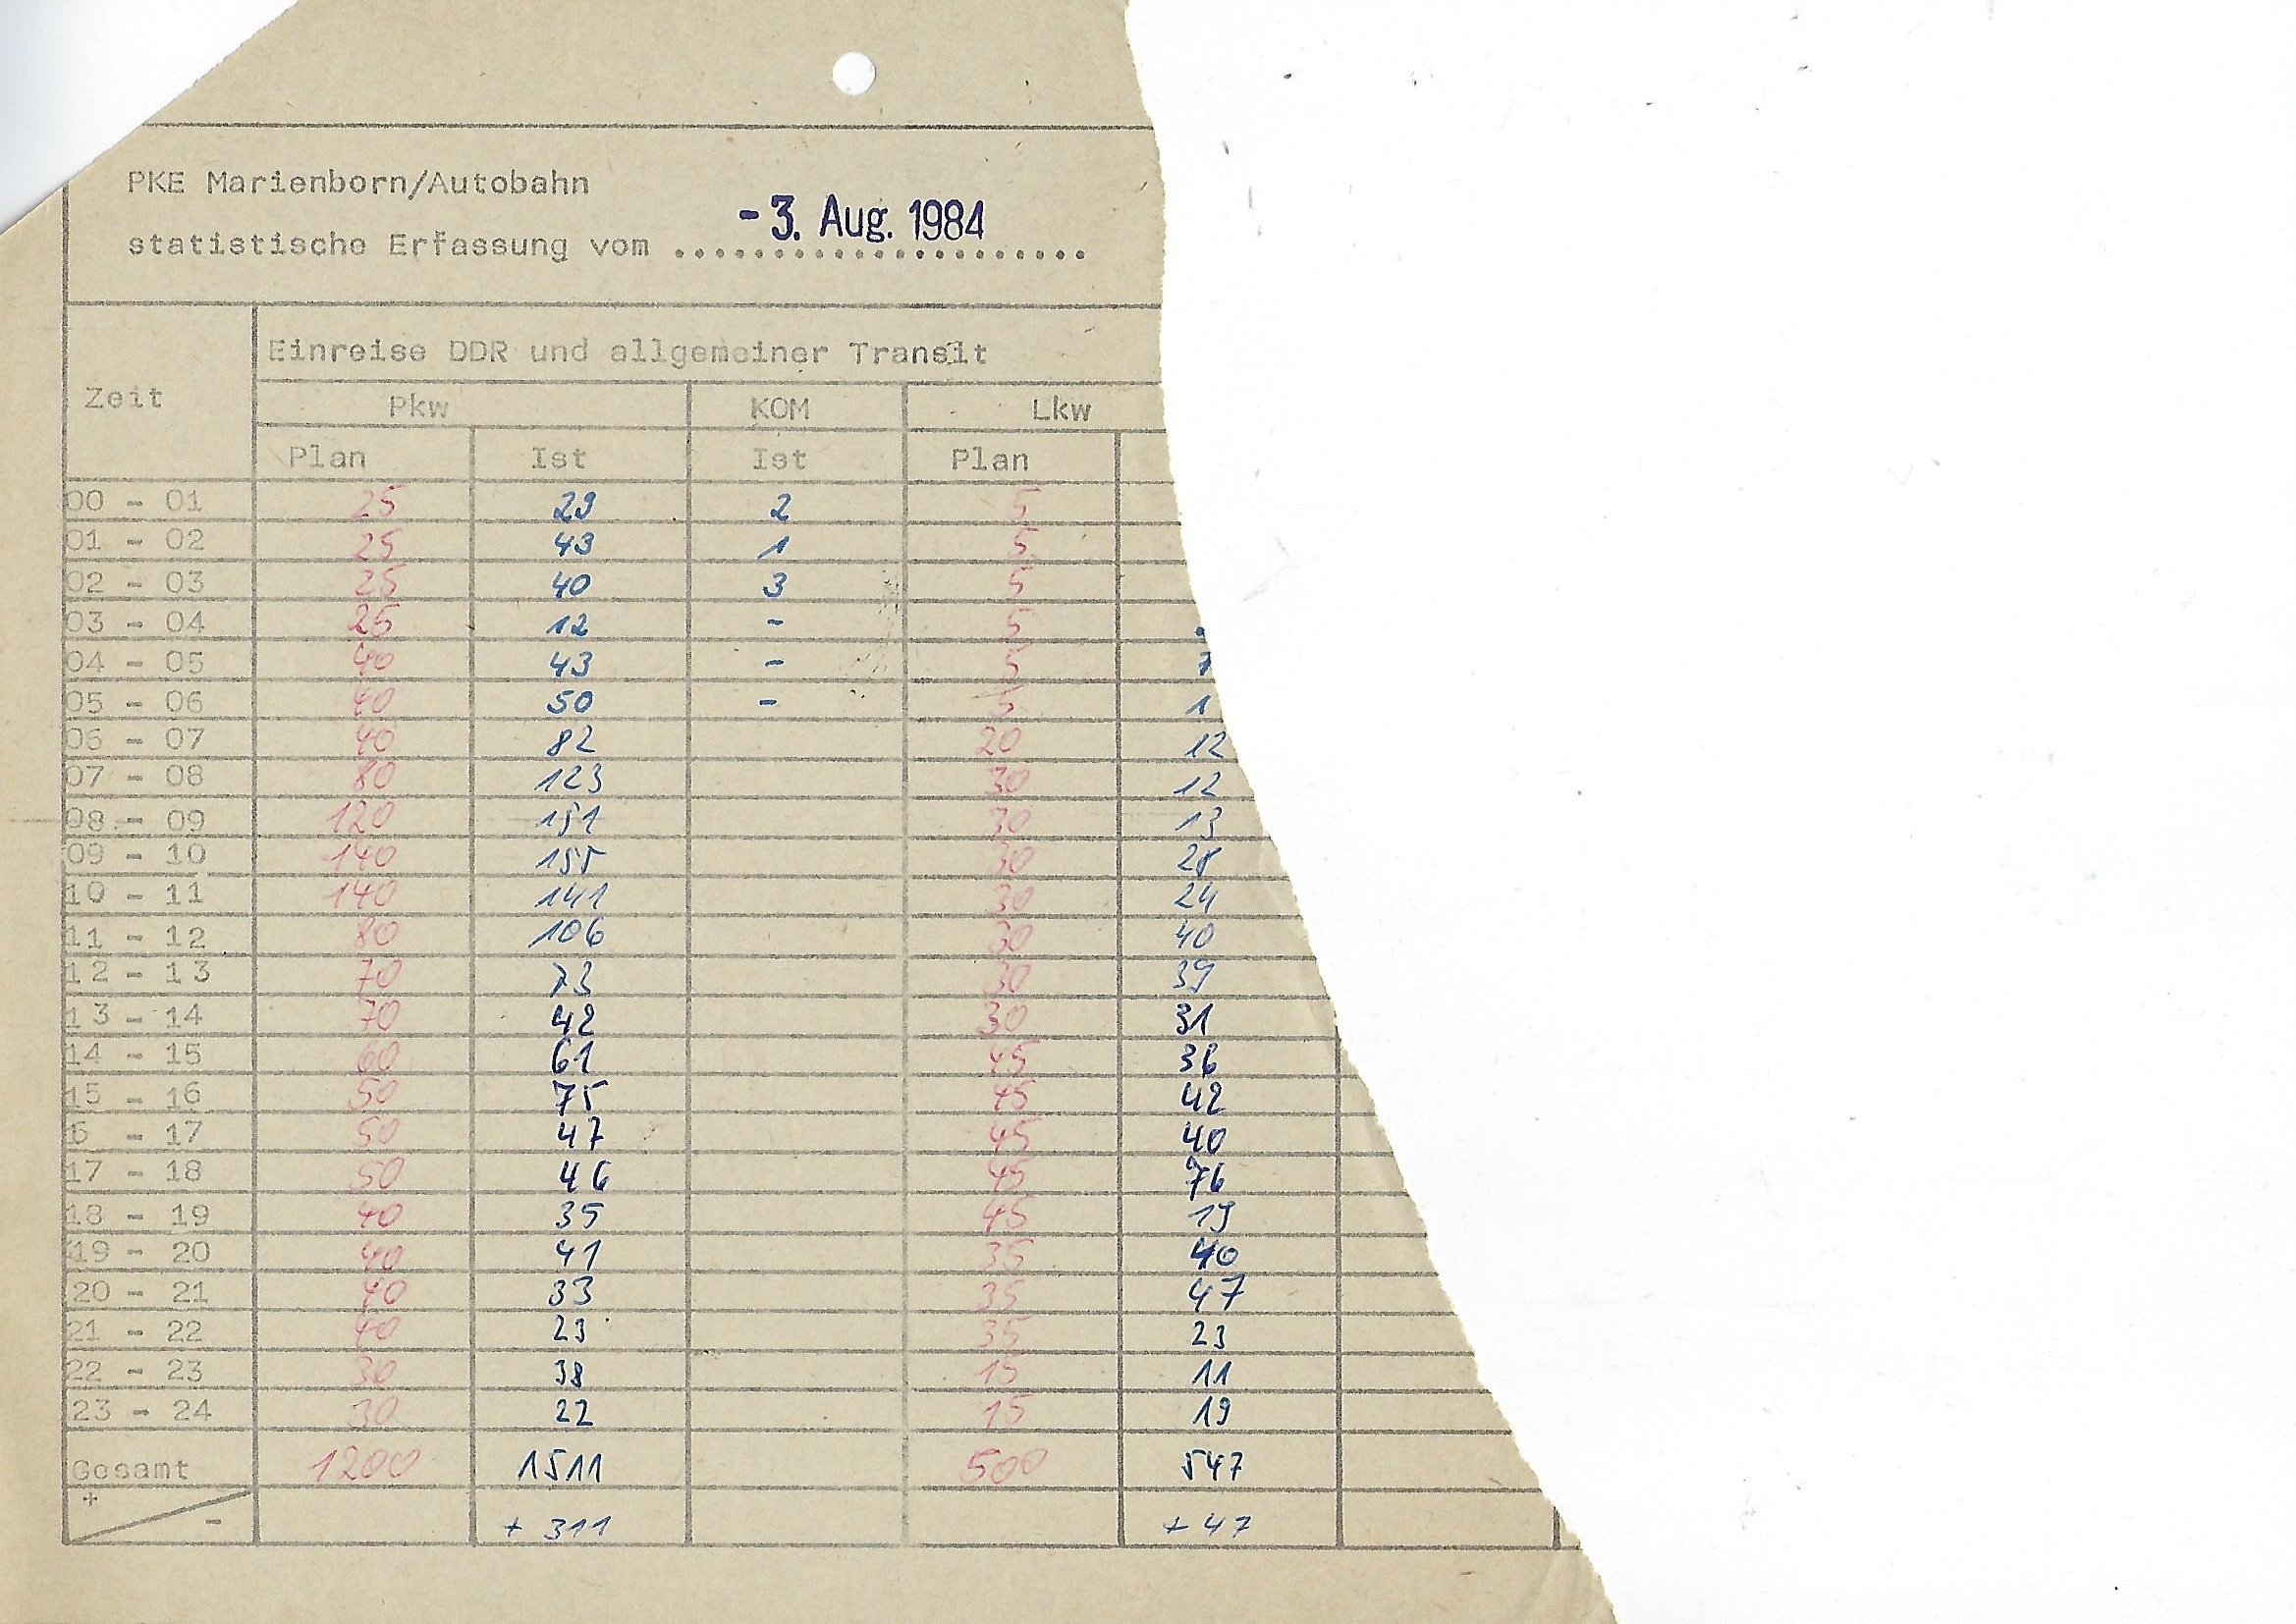 PKE Marienborn/Autobahn
- 3. Aug. 1984
statistische Erfassung vom ......................
Einreise DDR und allgemeiner Transit
Zeit Pkw KOM Lkw
Plan Ist Ist Plan
00 - 01 25 29 2 5
01 - 02 25 43 1 5
02 - 03 25 40 3 5
03 - 04 25 12 - 5
04 - 05 40 43 - 5 7
05 - 06 40 50 - 5 1
06 - 07 40 82 20 12
07 - 08 80 123 30 12
08 - 09 120 151 30 13
09 - 10 140 155 30 28
10 - 11 140 141 30 24
11 - 12 80 106 30 40
12 - 13 70 73 30 39
13 - 14 70 42 30 31
14 - 15 60 61 45 36
15 - 16 50 75 45 42
6 - 17 50 47 45 40
17 - 18 50 46 45 76
18 - 19 40 35 45 19
19 - 20 40 41 35 40
20 - 21 40 33 35 47
21 - 22 40 23 35 23
22 - 23 30 38 15 11
23 - 24 30 22 15 19
Gesamt 1200 1511 500 547
+ - + 311 + 47